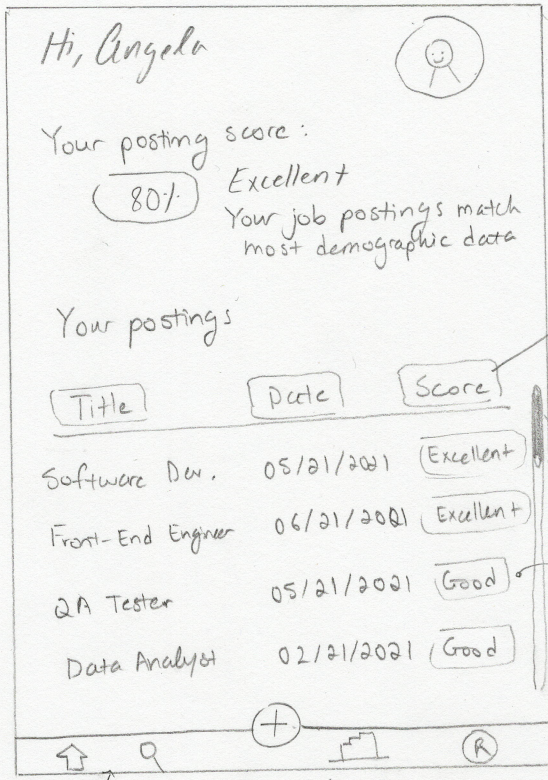 Hi, Angela
Your posting score:
80%
Excellent
Your job postings match
most demographic data
Your postings
Title Date Score
Software Dev. 05/21/2021 Excellent
Front-End Engineer 06/21/2021 Excellent
QA Tester 05/21/2021 Good
Data Analyst 02/21/2021 Good
R